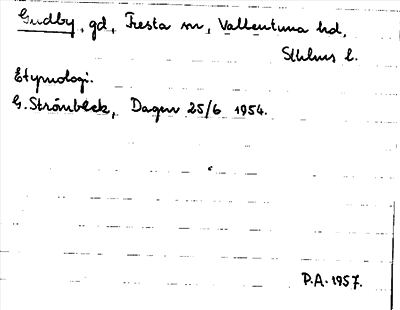 Gudby, gd, Fresta sn, Vallentuna hd,
Sthlms l.
Etymologi.
G. Strönbeck, Dagen 25/6 1954.
P.A. 1957.